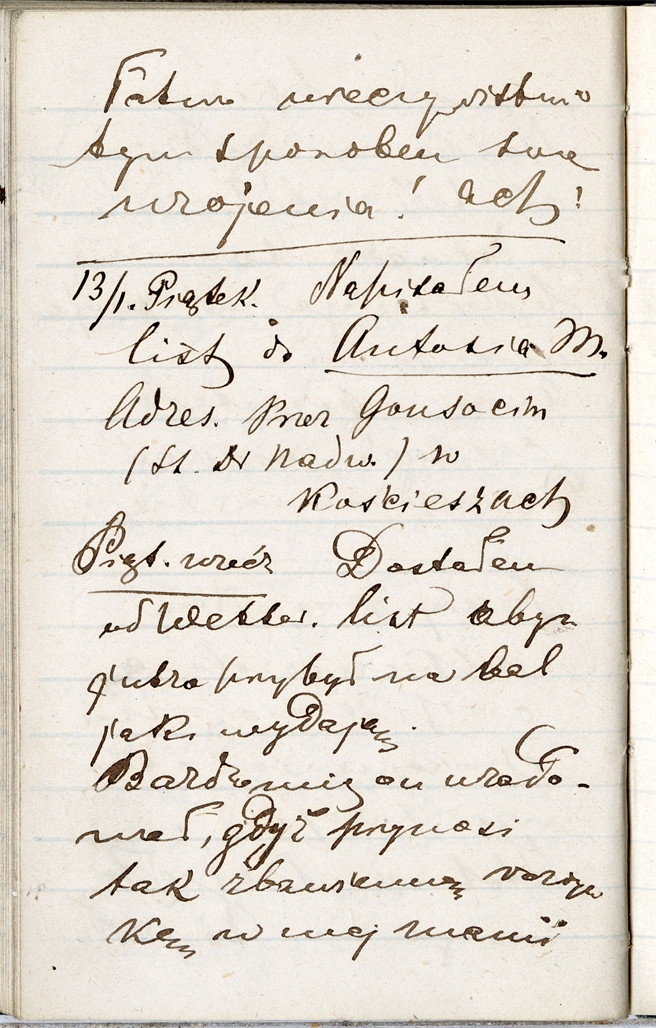 tym sposobem swe
urojenia! ach!
13/1. Piątek. Napisałem
list do Antosia M.
Adres. Gonsocin
(St. Dr Nadw.) w
Kościeszach
Piąt. wiecz Dostałem
od list abym
jutro przybył na bal
jaki wydają
Bardzo mię on urado-
wał, gdyż przynosi
tak zbawienną rozryw
kę w mej manii